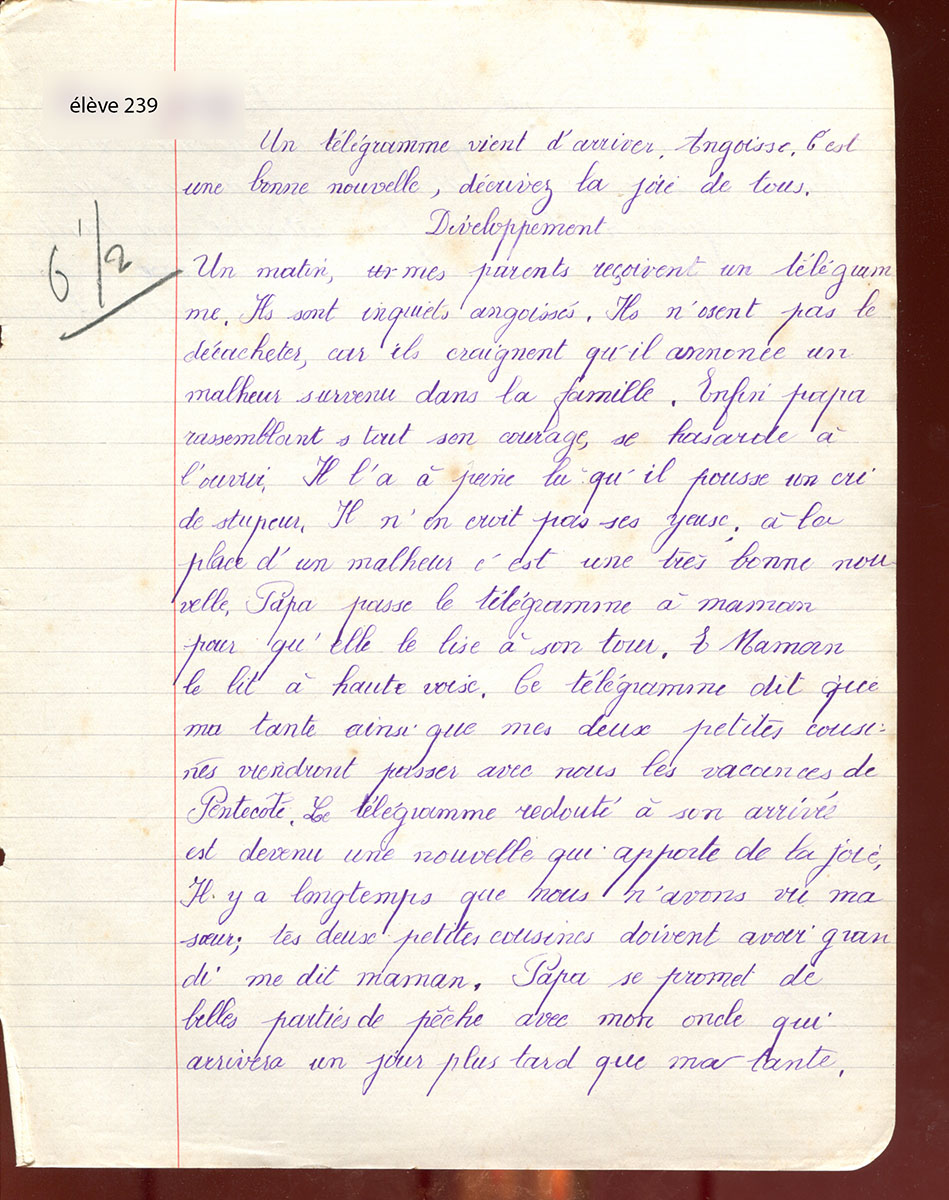 élève 239
Un télégramme vient d'arriver. Angoisse. C'est
une bonne nouvelle, décrivez la joie de tous.
Développement
6 1/2
Un matin, mes parents reçoivent un télégram
me. Ils sont inquiets angoissés. Ils n'osent pas le
décacheter, car ils craignent qu'il annonce un
malheur survenu dans la famille. Enfin papa
rassemblant s tout son courage, se hasarde à
l'ouvrir. Il l'a à peine lu qu'il pousse un cri
de stupeur. Il n'en croit pas ses yeuse. à la
place d'un malheur c'est une très bonne nou
velle. Papa passe le télégramme à maman
pour qu'elle le lise à son tour. E Maman
le lit à haute voise. Ce télégramme dit que
ma tante ainsi que mes deux petites cousi-
nes viendront passer avec nous les vacances de
Pentecôte. Le télégramme redouté à son arrivés
est devenu une nouvelle qui apporte de la joie.
Il y a longtemps que nous n'avons vu ma
sœur; tes deux petites cousines doivent avoir gran
di me dit maman. Papa se promet de
belles parties de pêche avec mon oncle qui
arrivera un jour plus tard que ma tante.